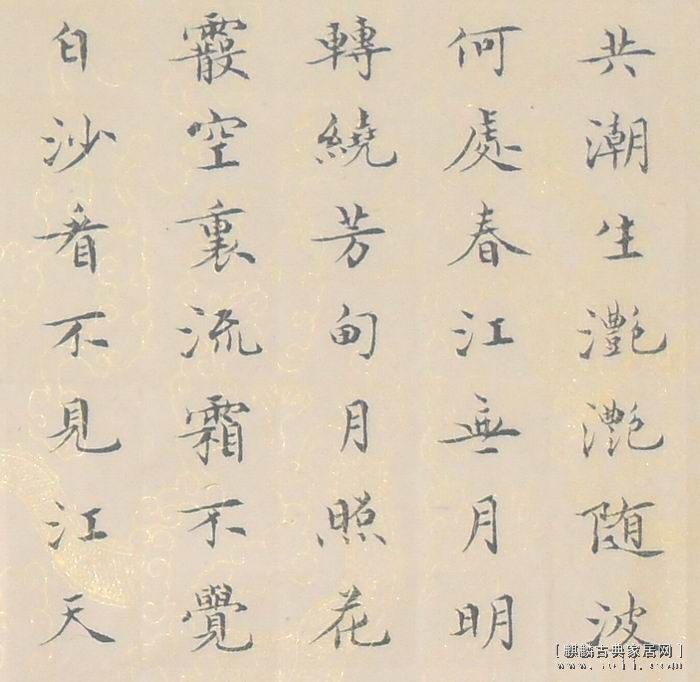 共潮生灩灩随波
何處春江無月明
轉繞芳甸月照花
霰空裏流霜不覺
白沙看不見江天
[麒麟古典家居网]